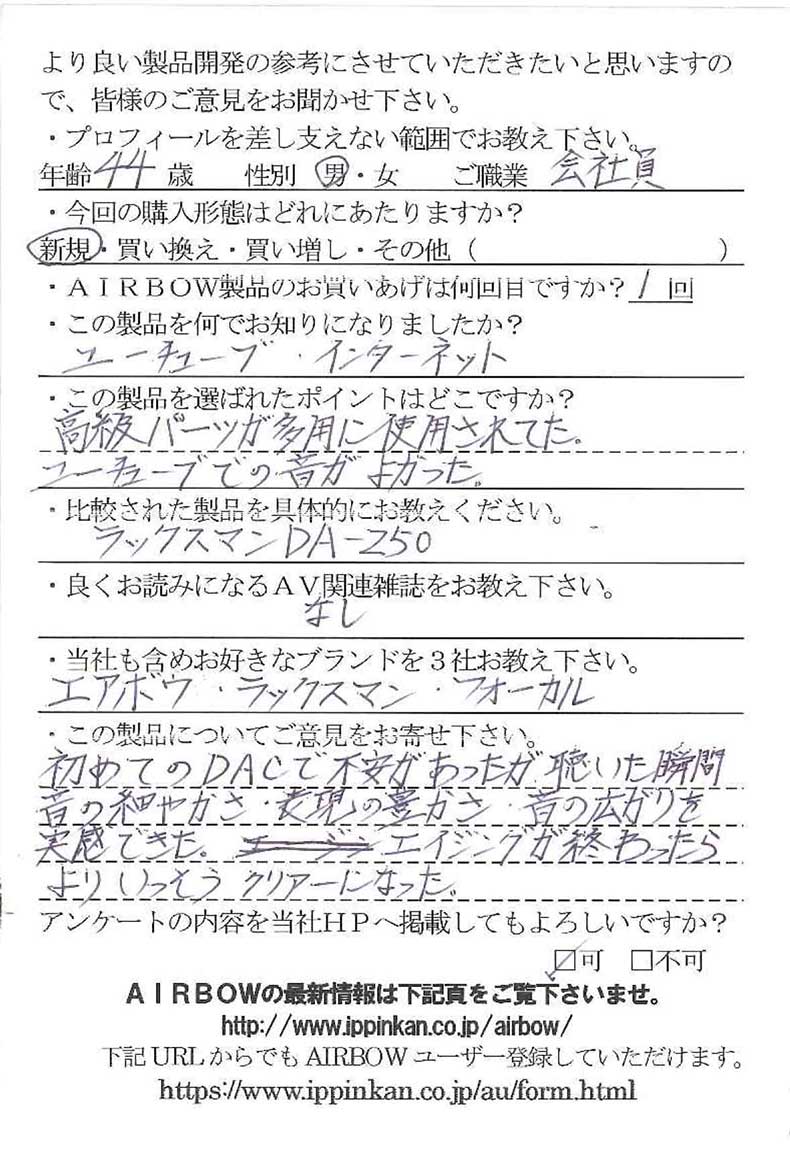 より良い製品開発の参考にさせていただきたいと思いますの
で、皆様のご意見をお聞かせ下さい。
・プロフィールを差し支えない範囲でお教え下さい。
年齢 44 歳 性別 男・女 ご職業 会社員
・今回の購入形態はどれにあたりますか？
新規・買い換え・買い増し・その他（ ）
・ＡＩＲＢＯＷ製品のお買いあげは何回目ですか？ 1 回
・この製品を何でお知りになりましたか？
ユーチューブ・インターネット
・この製品を選ばれたポイントはどこですか？
高級パーツが多用に使用されてた。
ユーチューブでの音がよかった。
・比較された製品を具体的にお教えください。
ラックスマンDA-250
・良くお読みになるＡＶ関連雑誌をお教え下さい。
なし
・当社も含めお好きなブランドを３社お教え下さい。
エアボウ・ラックスマン・フォーカル
・この製品についてご意見をお寄せ下さい。
初めてのDACで不安があったが聴いた瞬間
音の細やかさ・表現の豊かさ・音の広がりを
実感できた。エイジングが終わったら
よりいっそうクリアーになった。
アンケートの内容を当社ＨＰへ掲載してもよろしいですか？
☑可 □不可
ＡＩＲＢＯＷの最新情報は下記頁をご覧下さいませ。
http://www.ippinkan.co.jp/airbow/
下記URLからでもAIRBOWユーザー登録していただけます。
https://www.ippinkan.co.jp/au/form.html